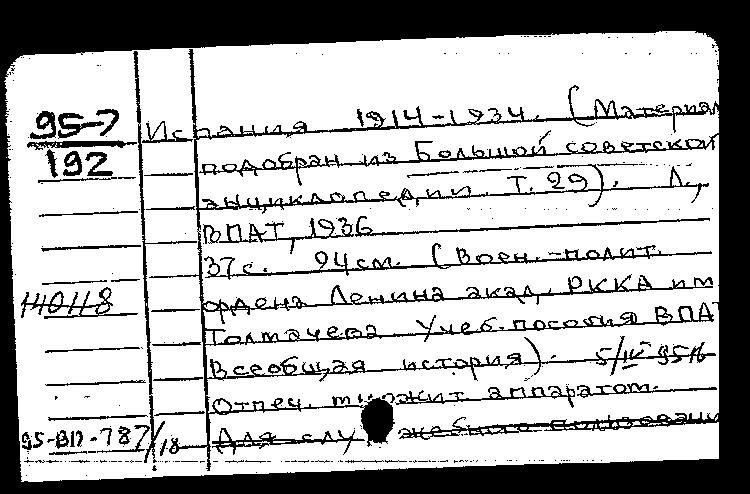 95-7
192
Испания 1914-1934. (Материал
подобран из Большой советской
энциклопедии. Т. 29). Л.,
ВПАТ, 1936
37с. 24см. (Воен.-полит.
140118
ордена Ленина акад. РККА им
Толмачева. Учеб. пособия ВПАТ
Всеобщая история). 5/IV-95
Отпеч. множит. аппаратом.
95-ВП-787/18
Для служебного пользования